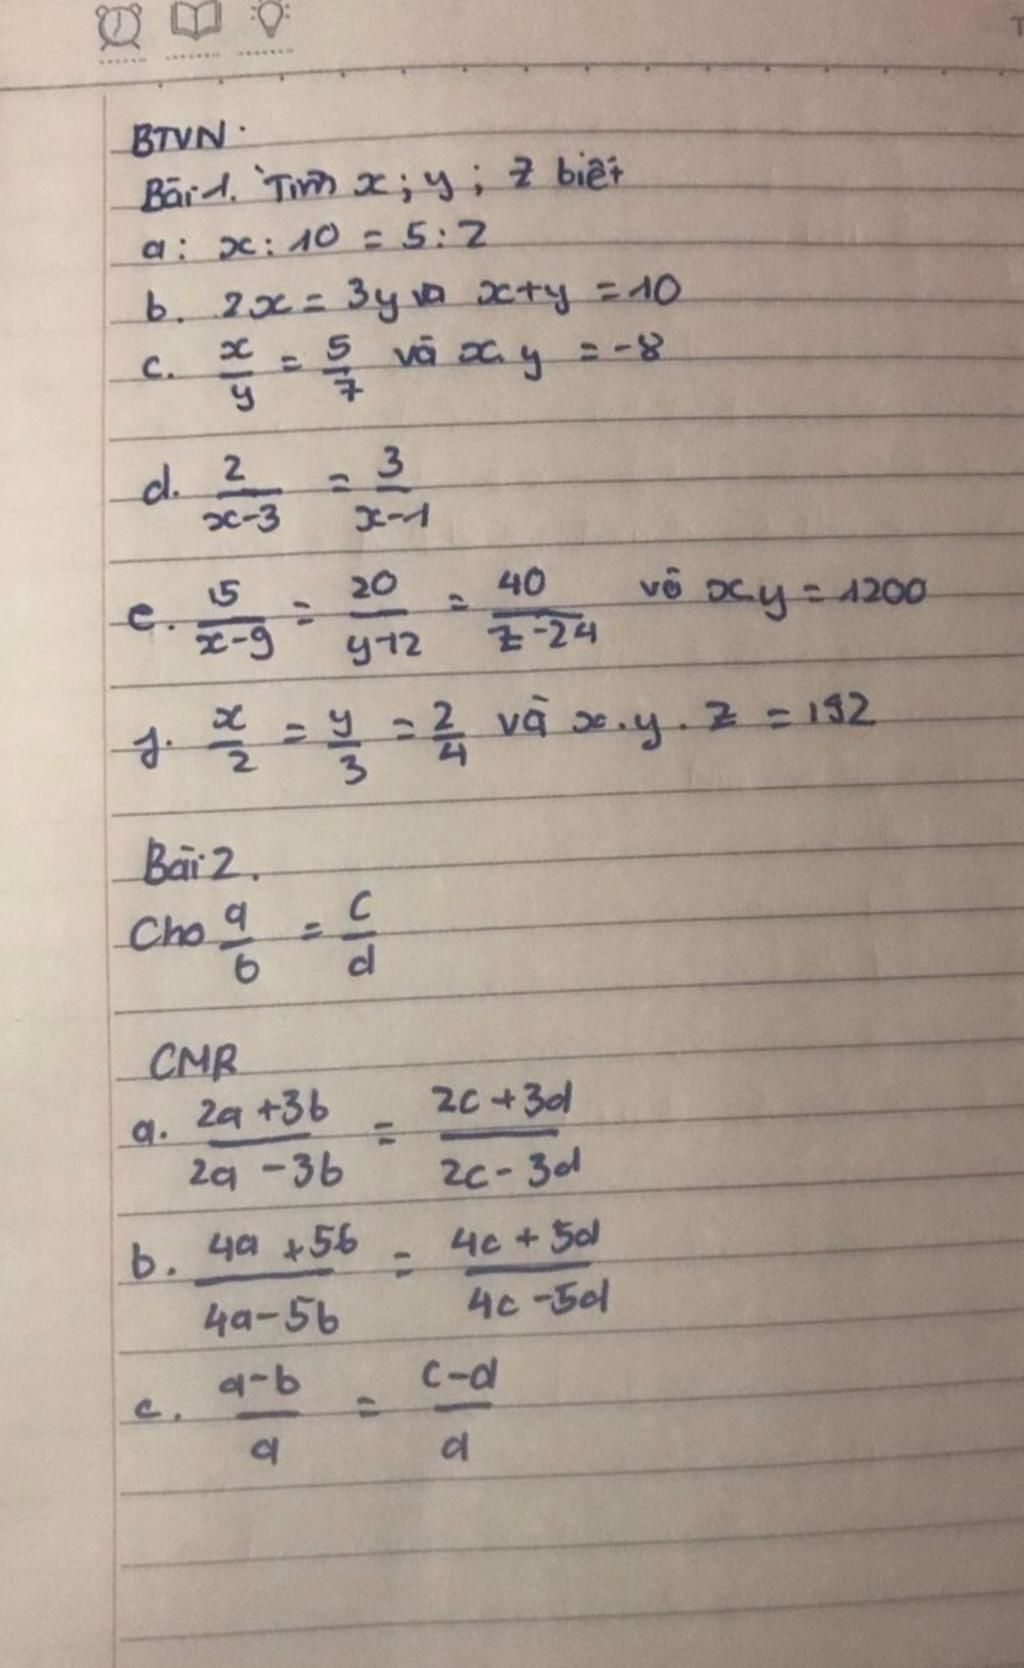 BTVN.
Bài 1. Tìm x; y; z biết
a: x: 10 = 5:2
b. 2x = 3y và x+y = 10
c. x/y = 5/7 và x. y = -8
d. 2/(x-3) = 3/(x-1)
e. 15/(x-9) = 20/(y-12) = 40/(z-24) và x.y = 1200
f. x/2 = y/3 = 2/4 và x.y.z = 192
Bài 2.
Cho a/b = c/d
CMR
a. (2a+3b)/(2a-3b) = (2c+3d)/(2c-3d)
b. (4a+5b)/(4a-5b) = (4c+5d)/(4c-5d)
c. (a-b)/a = (c-d)/d